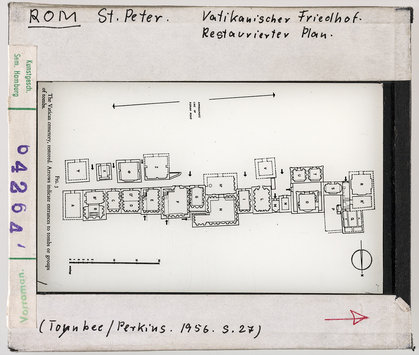 ROM St. Peter. Vatikanischer Friedhof.
Restaurierter Plan.
Kunstgesch.
Sem. Hamburg
64264'
Vorroman.
FIG. 3
The Vatican cemetery, restored. Arrows indicate entrances to tombs or groups
of tombs.
(Toynbee/Perkins. 1956. S.27)